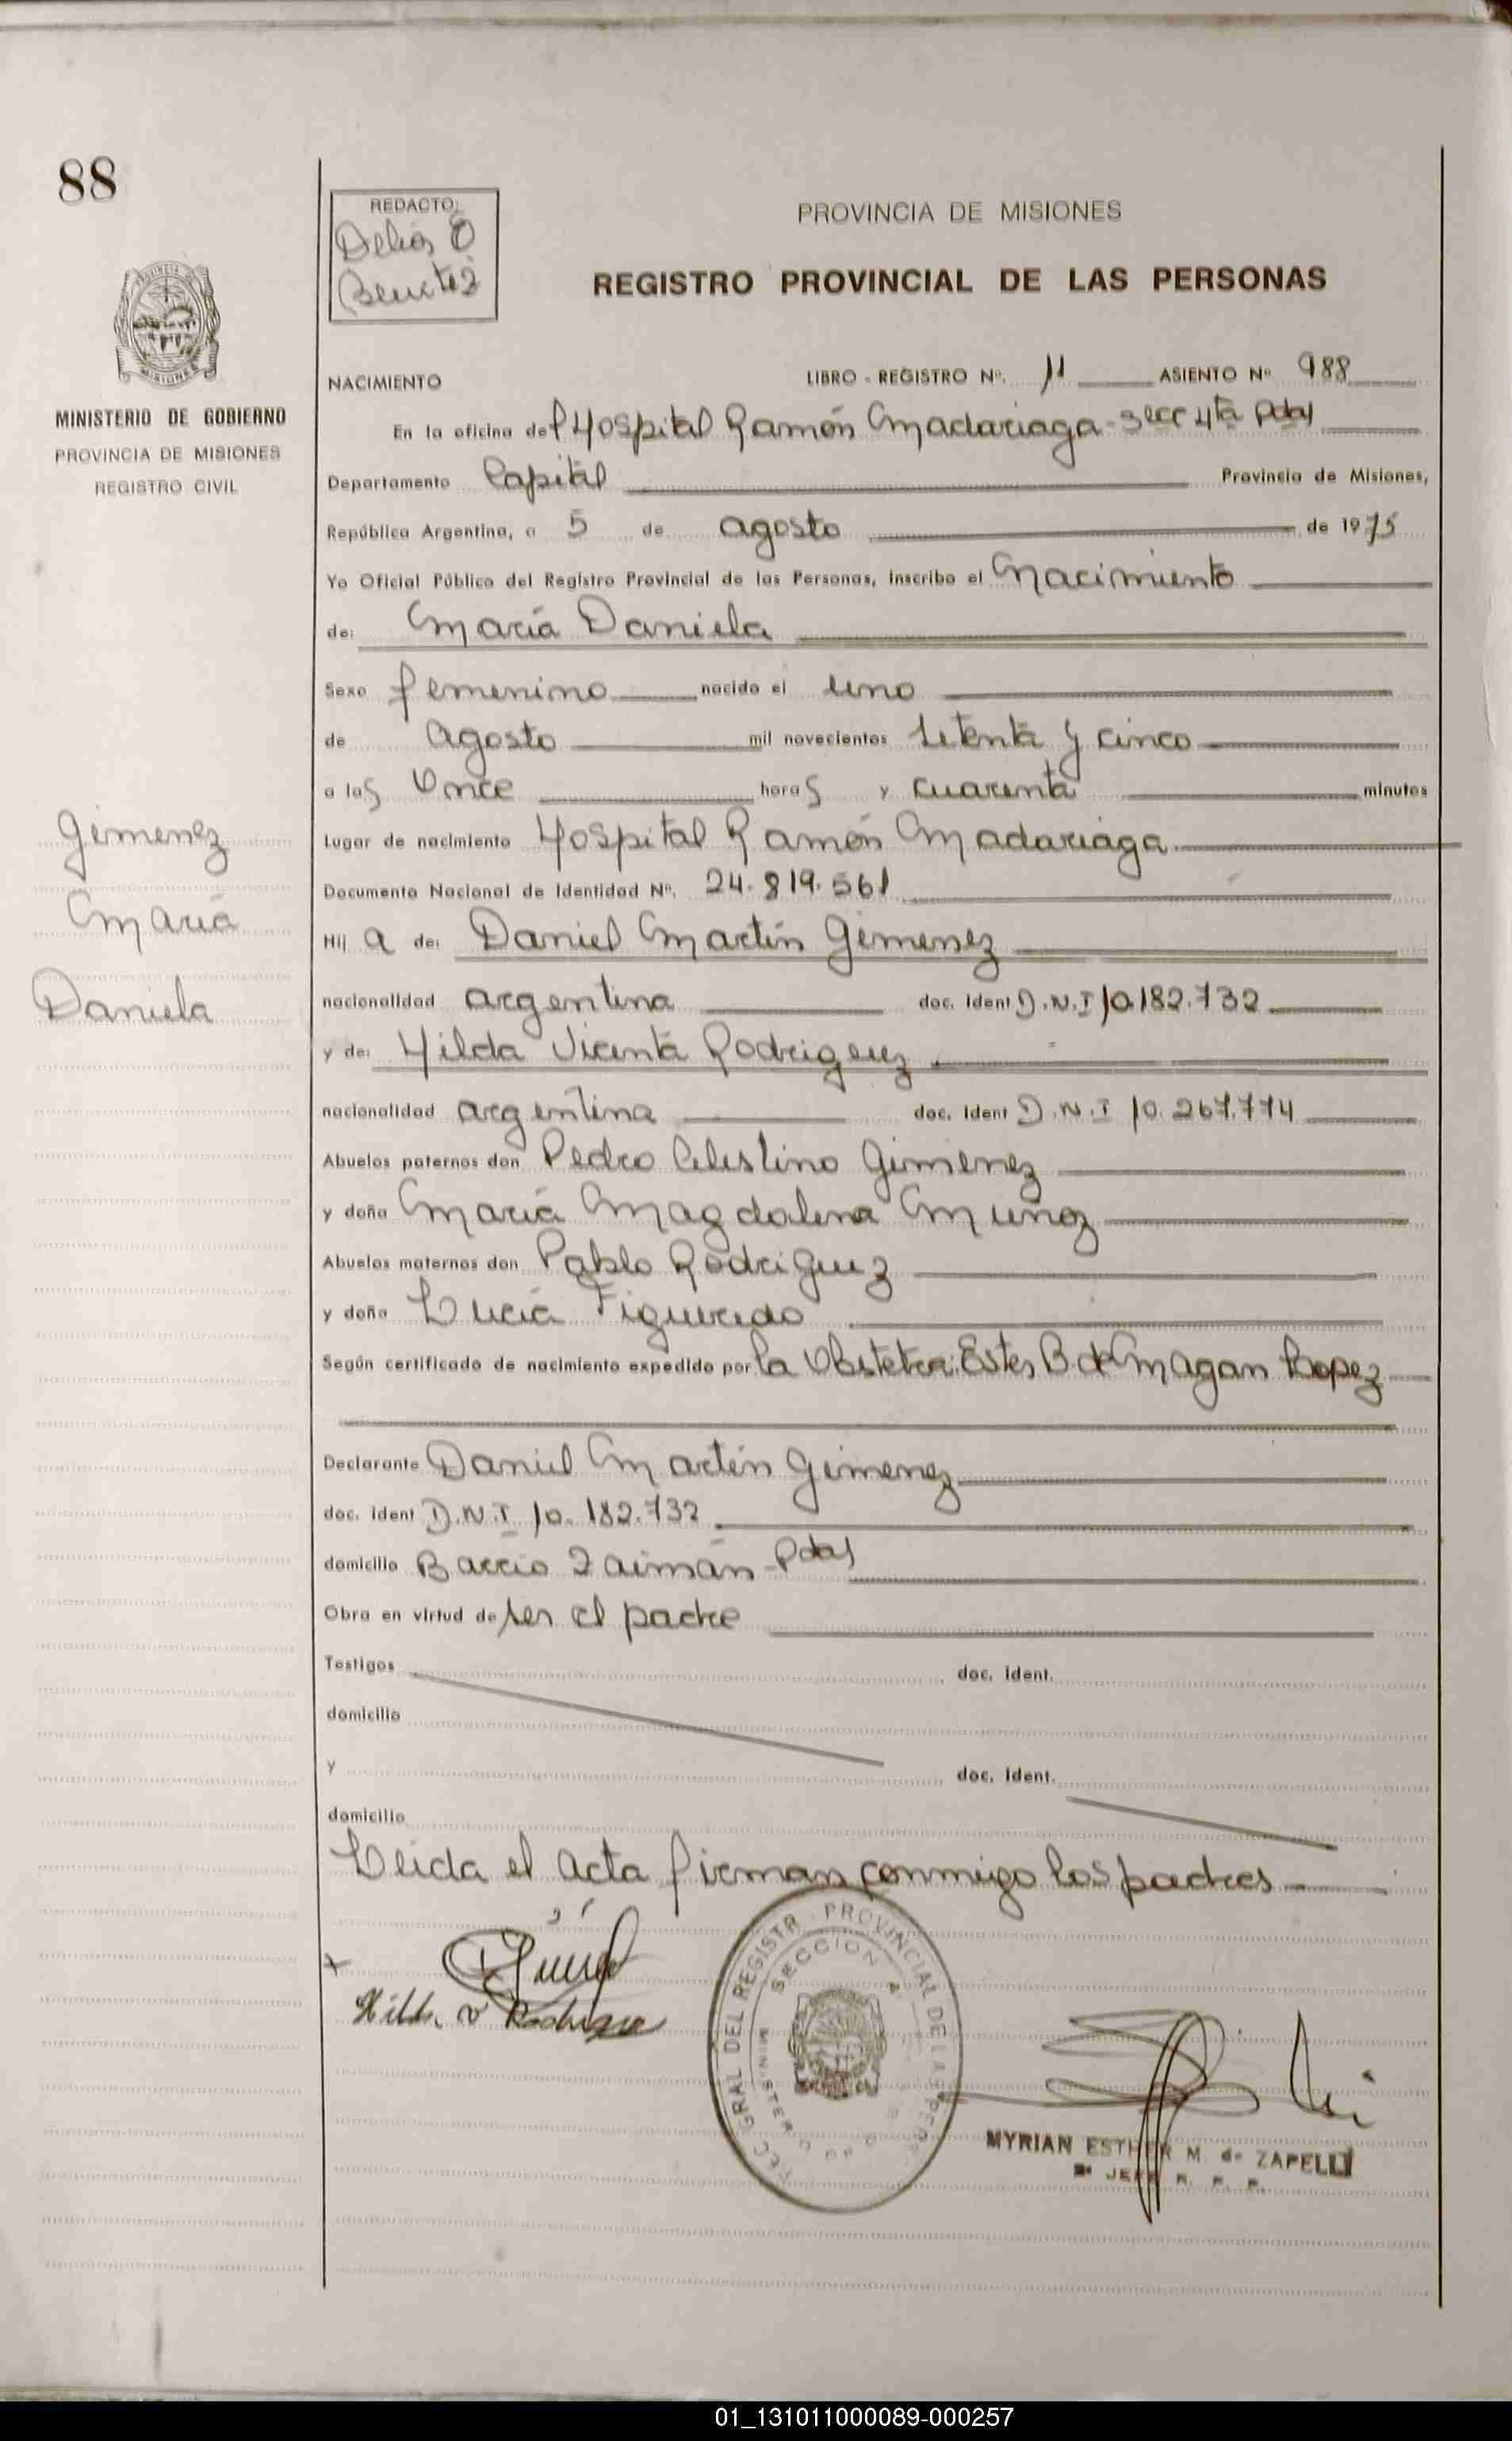 88
REDACTO:
Delia E
Benitez
PROVINCIA DE MISIONES
REGISTRO PROVINCIAL DE LAS PERSONAS
MISIONES
MINISTERIO DE GOBIERNO
PROVINCIA DE MISIONES
REGISTRO CIVIL
NACIMIENTO LIBRO - REGISTRO Nº. 11 ASIENTO Nº 988
En la oficina del Hospital Ramón Madariaga - Secc 4ta Pdas
Departamento Capital Provincia de Misiones,
República Argentina, a 5 de agosto de 1975
Yo Oficial Público del Registro Provincial de las Personas, inscribo el Nacimiento
de: María Daniela
Sexo femenino nacido el uno
de agosto mil novecientos setenta y cinco
a las Once horas y cuarenta minutos
Lugar de nacimiento Hospital Ramón Madariaga
Documento Nacional de Identidad Nº. 24.819.561
Hij a de: Daniel Martín Gimenez
nacionalidad argentina doc. ident D.N.I 10.182.732
y de: Hilda Vicenta Rodrigeuz
nacionalidad argentina doc. ident D.N.I 10.267.774
Abuelos paternos don Pedro Celestino Gimenez
y doña María Magdalena Muñoz
Abuelos maternos don Pablo Rodriguez
y doña Lucía Figueredo
Según certificado de nacimiento expedido por la Obstetra: Ester B. de Magan Lopez
Declarante Daniel Martín Gimenez
doc. ident D.N.I 10.182.732
domicilio Barrio Zaimán - Pdas
Obra en virtud de ser el padre
Testigos doc. ident.
domicilio
y doc. ident.
domicilio
Leida el acta firman conmigo los padres
Gimenez
María
Daniela
x
Hilda V Rodriguez
GRAL DEL REGISTR. PROVINCIAL DE LAS PER
SECCION 4
MINISTERIO
MYRIAN ESTHER M. de ZAPELLI
2º JEFE R. P. P.
01_131011000089-000257